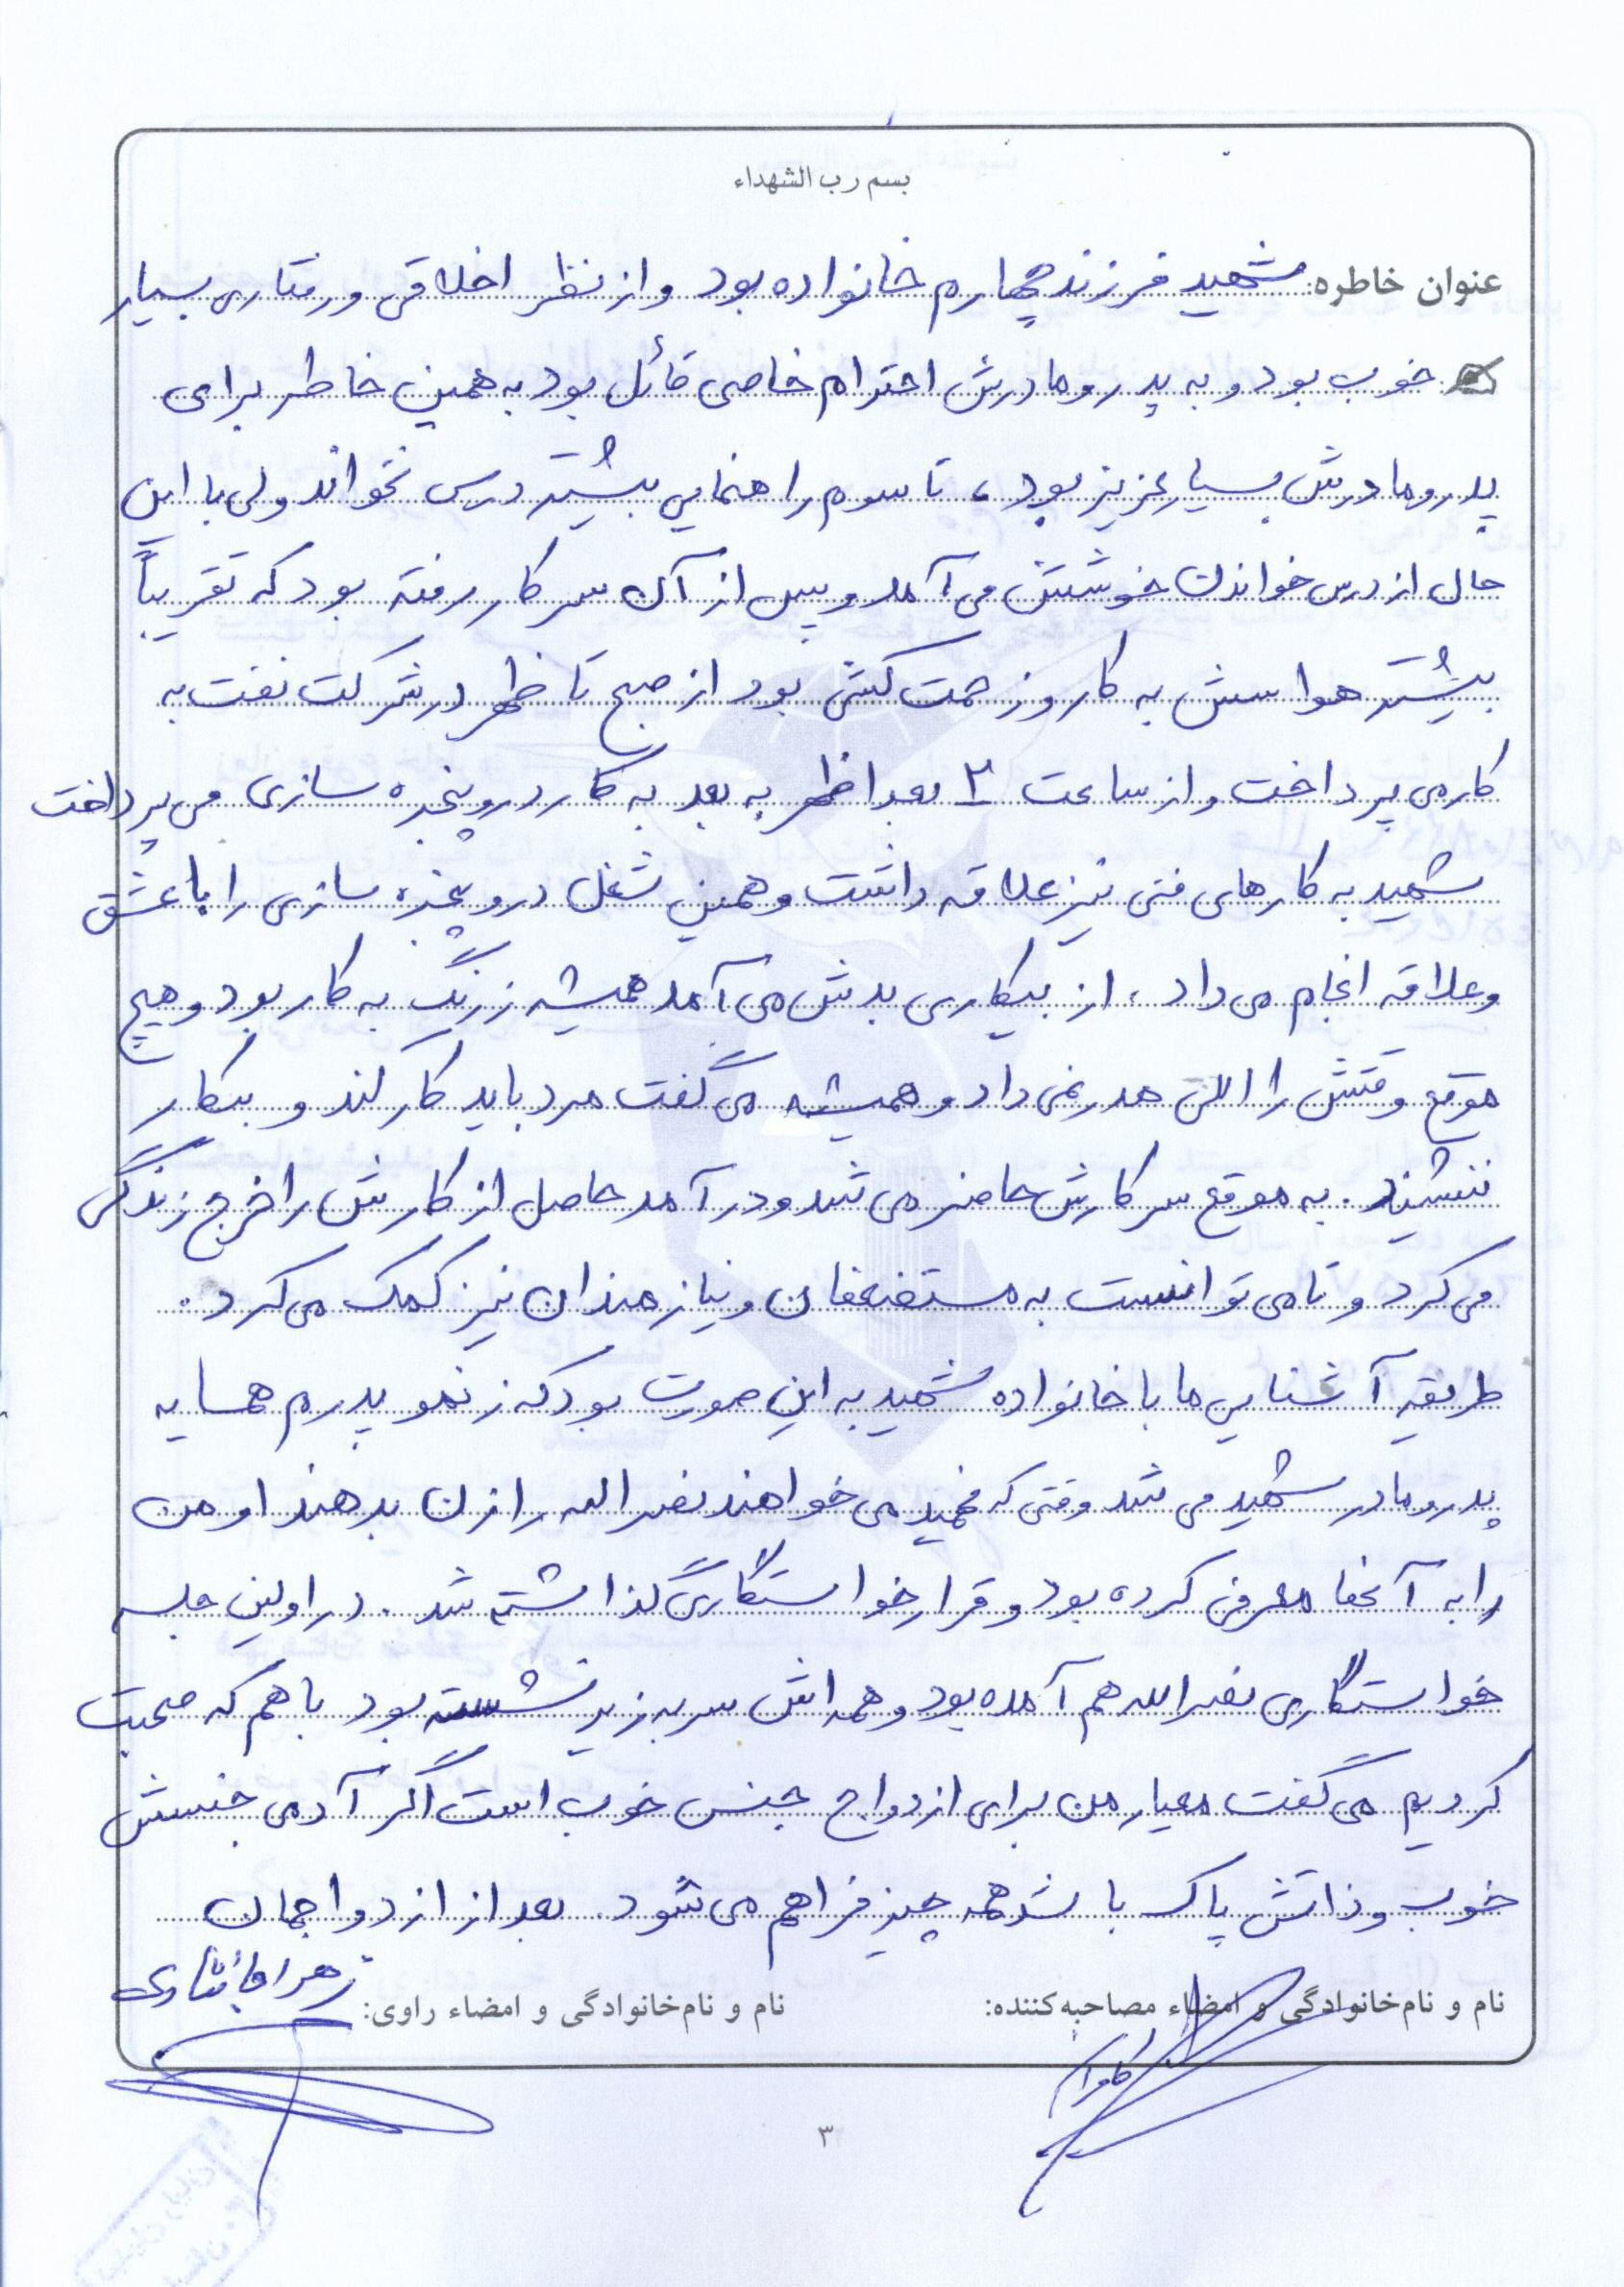 بسم رب الشهداء
عنوان خاطره: شهید فرزند چهارم خانواده بود و از نظر اخلاقی و رفتاری بسیار
خوب بود و به پدر و مادرش احترام خاصی قائل بود به همین خاطر برای
پدر و مادرش بسیار عزیز بود، تا سوم راهنمایی بیشتر درس نخواند ولی با این
حال از درس خواندن خوشش می آمد و پس از آن سر کار رفته بود که تقریباً
بیشتر هواسش به کار و زحمت کشی بود از صبح تا ظهر در شرکت نفت به
کار می پرداخت و از ساعت ۲ بعدا ظهر به بعد به کار در و پنجره سازی می پرداخت
شهید به کارهای فنی نیز علاقه داشت و همین شغل در و پنجره سازی را با عشق
و علاقه انجام می داد، از بیکاری بدش می آمد همیشه زرنگ به کار بود و هیچ
موقع وقتش را الکی هدر نمی داد و همیشه می گفت مرد باید کار کند و بیکار
ننشیند. به موقع سر کارش حاضر می شد و در آمد حاصل از کارش را خرج زندگی
می کرد و تا می توانست به مستضعفان و نیازمندان نیز کمک می کرد.
طریقه آشنایی ما با خانواده شهید به این صورت بود که زنعمو پدرم همسایه
پدر و مادر شهید می شد وقتی که فهمید می خواهند نصراله را زن بدهند او من
را به آنها معرفی کرده بود و قرار خواستگاری گذاشته شد. در اولین جلسه
خواستگاری نصرالله هم آمده بود و همه اش سر به زیر نشسته بود با هم که صحبت
کردیم می گفت معیار من برای ازدواج جنس خوب است اگر آدمی جنسش
خوب و ذاتش پاک باشد همه چیز فراهم می شود. بعد از ازدواجمان
نام و نام‌خانوادگی و امضاء مصاحبه‌کننده:
نام و نام‌خانوادگی و امضاء راوی: زهرا
۳